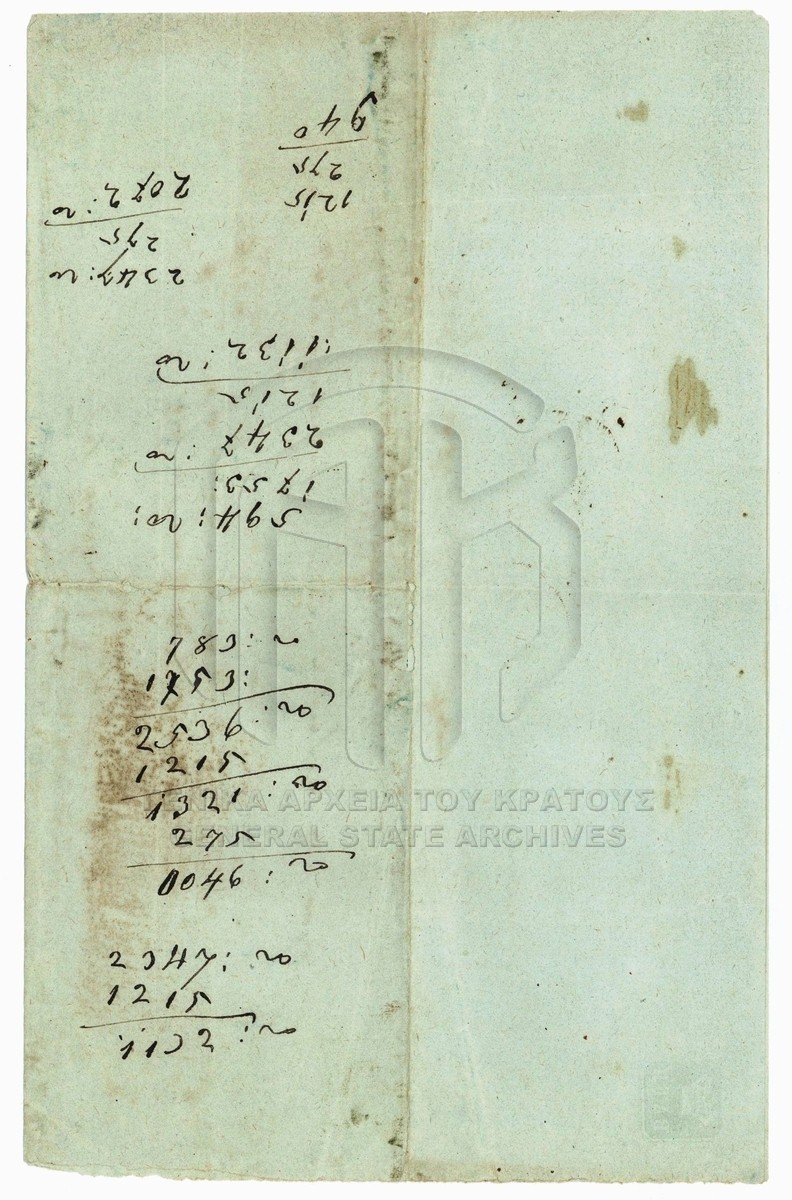 783: 20
1753:
2536: 20
1215
1321: 20
275
1046: 20
2347: 20
1215
1132: 20
594: 20:
1753:
2347: 20
1215
1132: 20
2347: 20
275
2072: 20
1215
275
940
ΓΕΝΙΚΑ ΑΡΧΕΙΑ ΤΟΥ ΚΡΑΤΟΥΣ
GENERAL STATE ARCHIVES